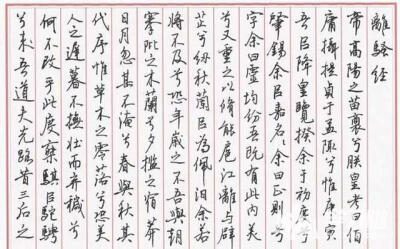 離騷經
帝高陽之苗裔兮朕皇考曰伯
庸攝提貞于孟陬兮惟庚寅
吾㠯降皇覽揆余于初度兮
肇錫余㠯嘉名〻余曰正則兮
字余曰靈均紛吾既有此內美
兮又重之以脩能扈江離與辟
芷兮紉秋蘭㠯為佩汩余若
將不及兮恐年歲之不吾與朝
搴阰之木蘭兮夕攬之宿莽
日月忽其不淹兮春與秋其
代序惟草木之零落兮恐美
人之遲暮不撫壯而棄穢兮
何不改乎此度乘騏㠯馳騁
兮來吾道夫先路昔三后之